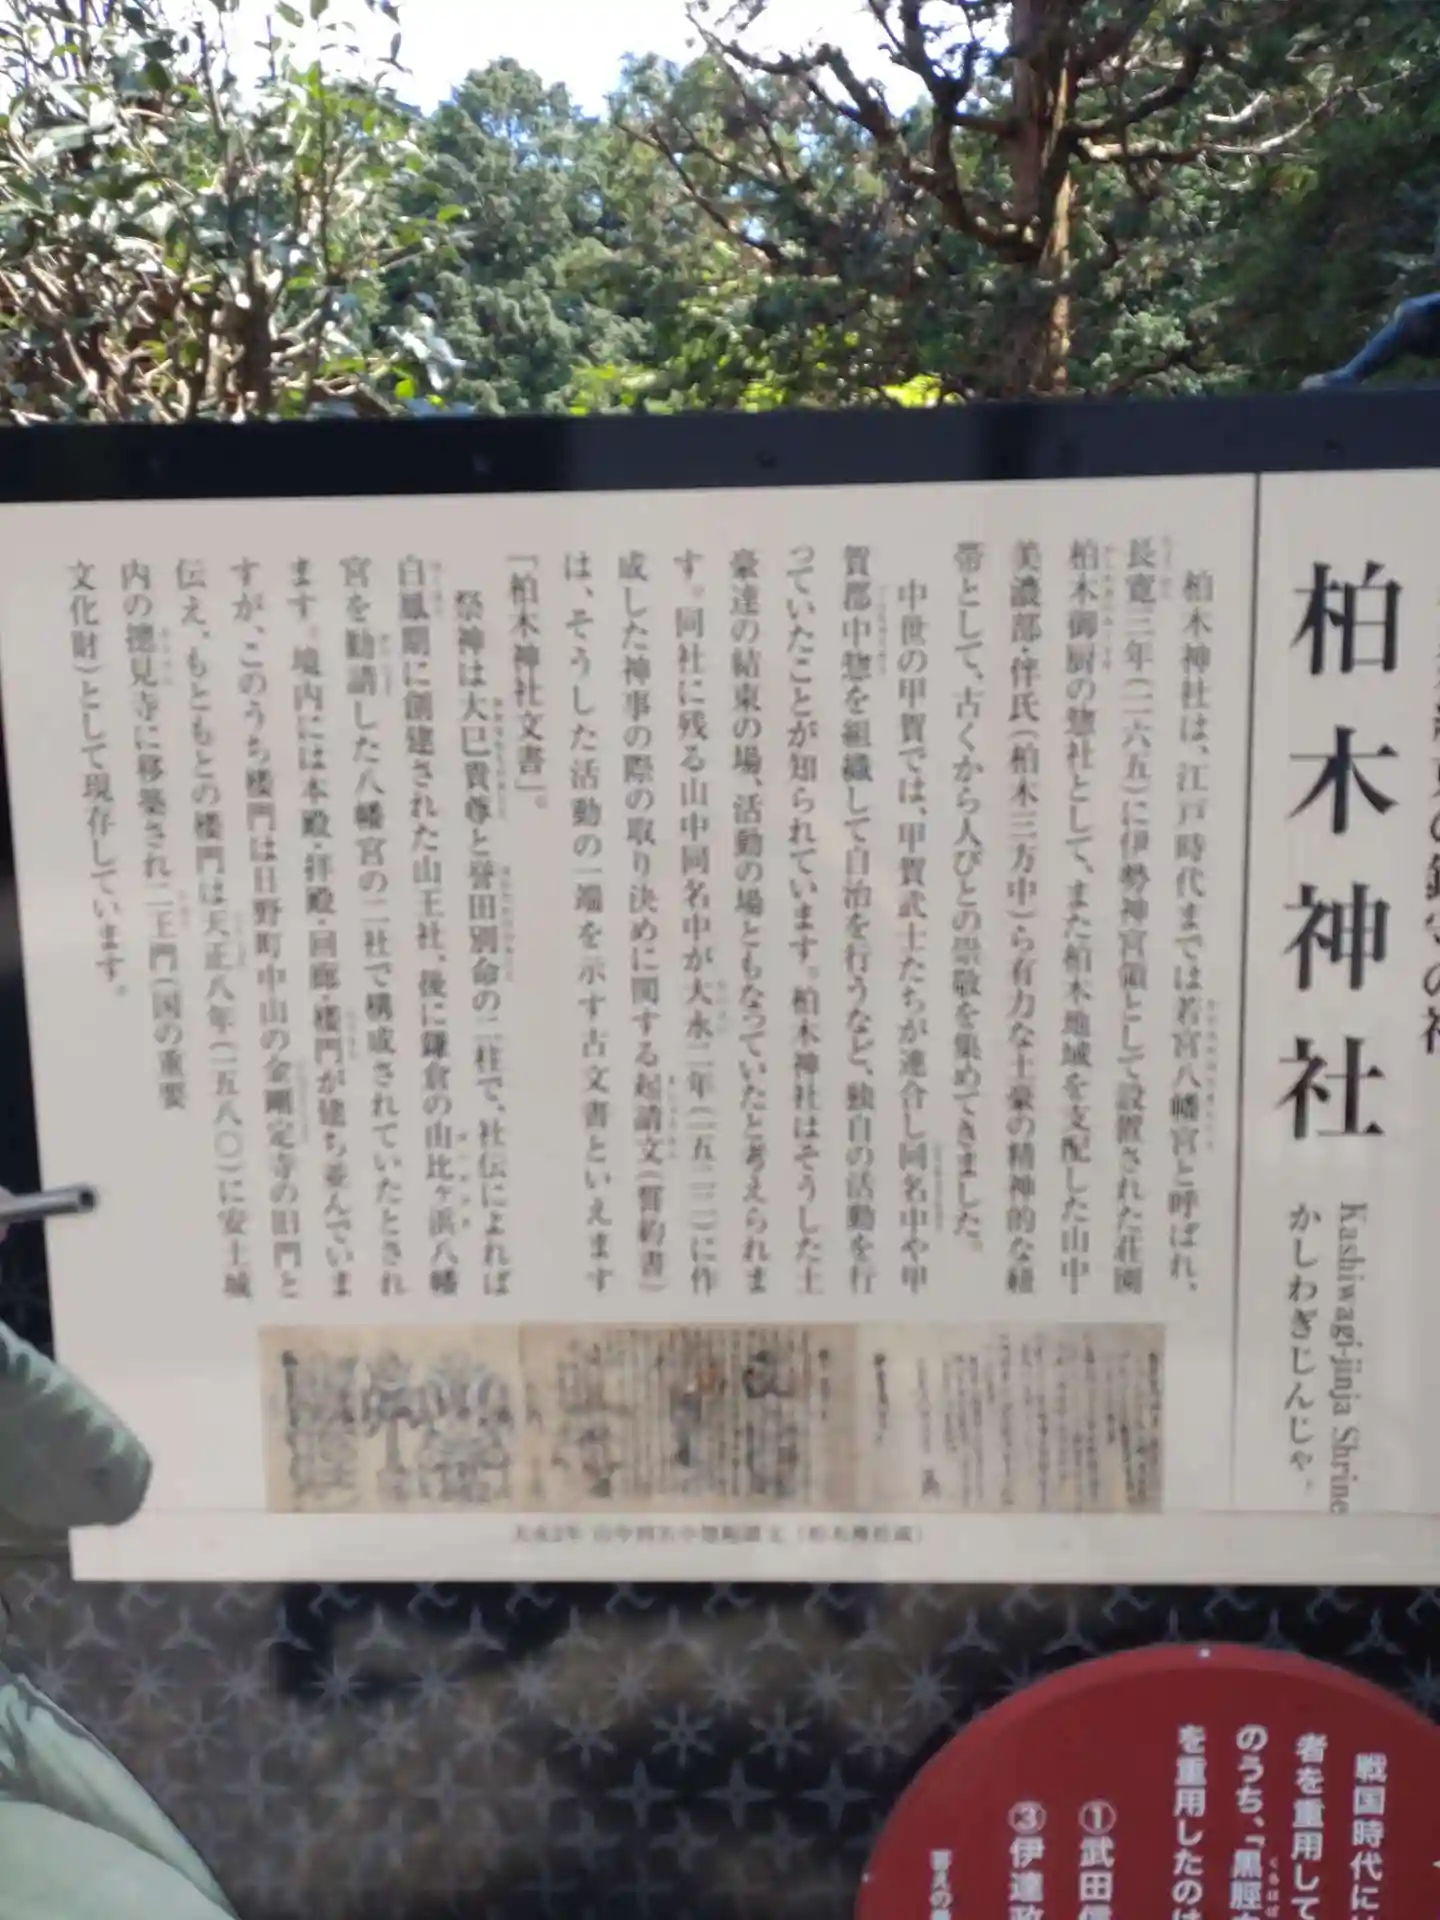 柏木神社
Kashiwagi-jinja Shrine
かしわぎじんじゃ
柏木神社は、江戸時代までは若宮八幡宮と呼ばれ、
長寛三年(一一六五)に伊勢神宮領として設置された荘園
柏木御厨の惣社として、また柏木地域を支配した山中
美濃部・伴氏(柏木三方中)ら有力な土豪の精神的な紐
帯として、古くから人びとの崇敬を集めてきました。
中世の甲賀では、甲賀武士たちが連合し同名中や甲
賀郡中惣を組織して自治を行うなど、独自の活動を行
っていたことが知られています。柏木神社はそうした土
豪達の結束の場、活動の場ともなっていたと考えられま
す。同社に残る山中同名中が大永二年(一五二二)に作
成した神事の際の取り決めに関する起請文(誓約書)
は、そうした活動の一端を示す古文書といえます
「柏木神社文書」。
祭神は大己貴尊と誉田別命の二柱で、社伝によれば
白鳳期に創建された山王社、後に鎌倉の由比ヶ浜八幡
宮を勧請した八幡宮の二社で構成されていたとされ
ます。境内には本殿・拝殿・回廊・楼門が建ち並んでいま
すが、このうち楼門は日野町中山の金剛定寺の旧門と
伝え、もともとの楼門は天正八年(一五八〇)に安土城
内の摠見寺に移築され二王門(国の重要
文化財)として現存しています。
大永2年 山中同名中惣起請文(柏木神社蔵)
戦国時代に
者を重用して
のうち、「黒脛
を重用したのは
①武田信
③伊達政
答えの